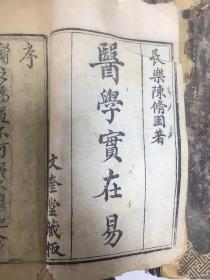 長樂陳脩園著
醫學實在易
文奎堂藏板
序